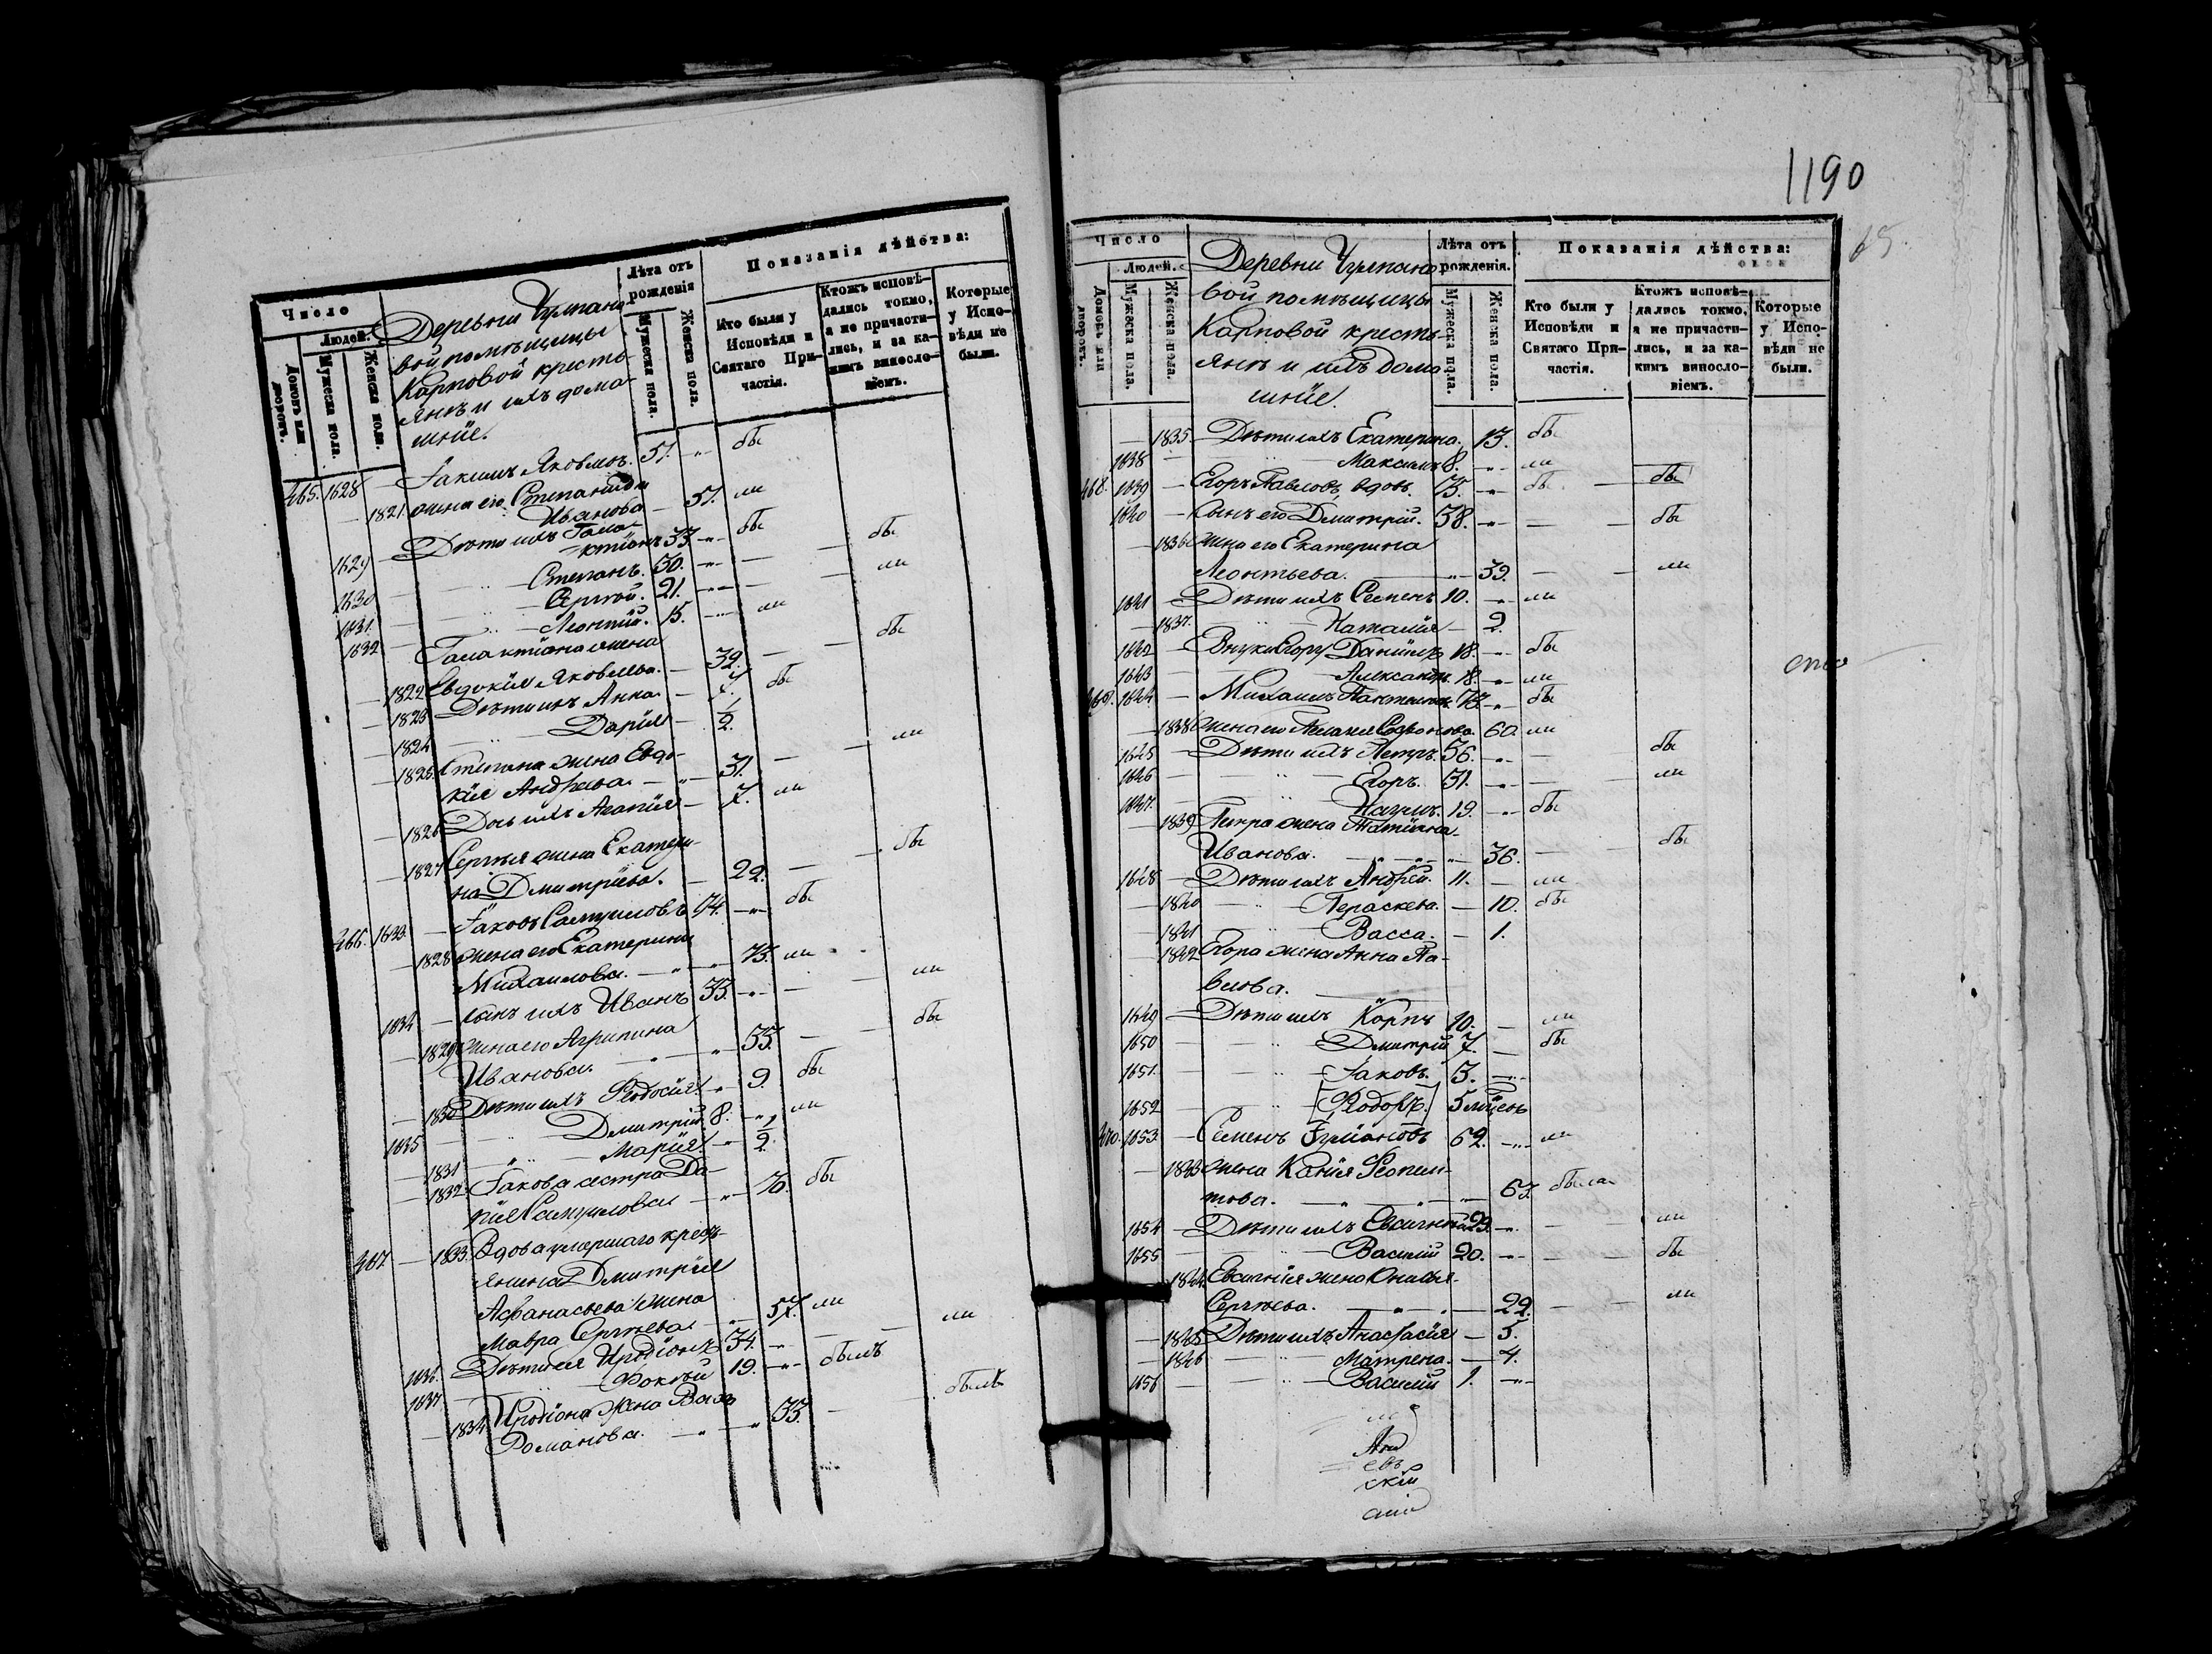 Число
Людей.
Домовъ или дворовъ.
Мужеска пола.
Женска пола.
Деревни
вой помѣщицы
Карповой кресть-
янъ и ихъ дома-
шніе.
Лѣта отъ рожденія
Мужеска пола.
Женска пола.
Показанія дѣйства:
Кто были у Исповѣди и Святаго При-частія.
Ктожъ исповѣ-дались токмо, а не причасти-лись, и за ка-кимъ виносло-віемъ.
Которые у Испо-вѣди не были.
465. 1628 — Іакимъ Яковлевъ. 57. -„- бы
— 1821. жена его Степанида
Иванова — 57. ли
1629 — Дѣти ихъ Гала-
ктіонъ 33. -„- бы
1630 — Степанъ. 30. -„- — — бы
1631. — Сергѣй. 21. -„- — — ли
1632 — Леонтій. 15. -„- ли
Галактіона жена
— 1822 Евдокія Яковлева. — 32. — — бы
— 1823 Дѣти ихъ Анна — 7. бы
— 1824 — Дарія — 1/2.
— 1825. Степана жена Евдо-
кія Андреева. — „ — 31. — — ли
— 1826 Дочь ихъ Агапія — 7. ли
— 1827 Сергѣя жена Екатери-
на Дмитріева. — 22. — — бы
466. 1633. — Іаковъ Самуиловъ 74. -„- бы
— 1828 жена его Екатерина
Михаилова. — „ — 73. ли
1634 — сынъ ихъ Иванъ 33. -„- — — ли
— 1829 жена его Агрипина
Иванова. — „ — 33. — — бы
— 1830 Дѣти ихъ Ѳеодосія — 9. бы
1635 — „ — Дмитрій. 8. -„- ли
— 1831 — „ — Марія. — 1/2.
— 1832. Іакова сестра Да-
рія Самуилова — „ — 70. бы
467. — 1833. Вдова умершаго кресть-
янина Дмитрія
Афанасьева жена
Мавра Сергѣева — „ — 57. ли
1636. Дѣти ея Иродіонъ 34. -„- — — ли
1637 — Фокѣй 19. -„- былъ
— 1834 Иродіона жена Васса
Романова. — „ — 33. — — былъ
1190
65.
Число
Людей.
Домовъ или дворовъ.
Мужеска пола.
Женска пола.
Деревни
вой помѣщицы
Карповой кресть-
янъ и ихъ дома-
шніе.
Лѣта отъ рожденія.
Мужеска пола.
Женска пола.
Показанія дѣйства:
Кто были у Исповѣди и Святаго При-частія.
Ктожъ исповѣ-дались токмо, а не причасти-лись, и за ка-кимъ виносло-віемъ.
Которые у Испо-вѣди не были.
— 1835 — Дѣти ихъ Екатерина. 13. бы
1638 — Максимъ 8. -„- ли
468. 1639 — Егоръ Павловъ вдовъ. 73. -„- бы — бы
1640 — Сынъ его Дмитрій. 38. -„- — — бы
— 1836 жена его Екатерина
Леонтьева. — „ — 39. — — ли
1641 — Дѣти ихъ Семенъ 10. -„- ли
— 1837. — Наталія — 2.
1642 — Внуки Егору Даніилъ 18. -„- бы
1643 — Александръ. 18. -„- ли
469. 1644 — Михаилъ -„- бы
— 1838 жена его Пелагея Софронова. 60. ли
1645 — Дѣти ихъ Петръ. 36. -„- — бы
1646 — Егоръ. 31. -„- — — ли
1647. — Наумъ. 19. -„- бы
— 1839 Петра жена Татіана
Иванова. — „ — 36. — — бы
1648 — Дѣти ихъ Андрей. 11. — ли
— 1840 — Пераскева. — 10. бы
— 1841 — Васса. — 1.
— 1842 Егора жена Анна Па-
влова.
1649 — Дѣти ихъ Карпъ 10. — ли
1650 — Дмитрій 7. — бы
1651. — Іаковъ. 3. -„-
1652 — [Ѳеодоръ.] 5 мѣсяц
470. 1653. — Семенъ 62. -„- ли
— 1843 жена Ксенія
63. была
1654 — Дѣти ихъ Евсигній 23. -„- — — ли
1655 — Василій 20. -„- — — бы
— 1844. Евсигнія жена
Сергѣева. — „ — 22. — — ли
— 1845 Дѣти ихъ Анастасія — 5.
— 1846 — Матрена. — 4.
1656 — Василій 1. -„-